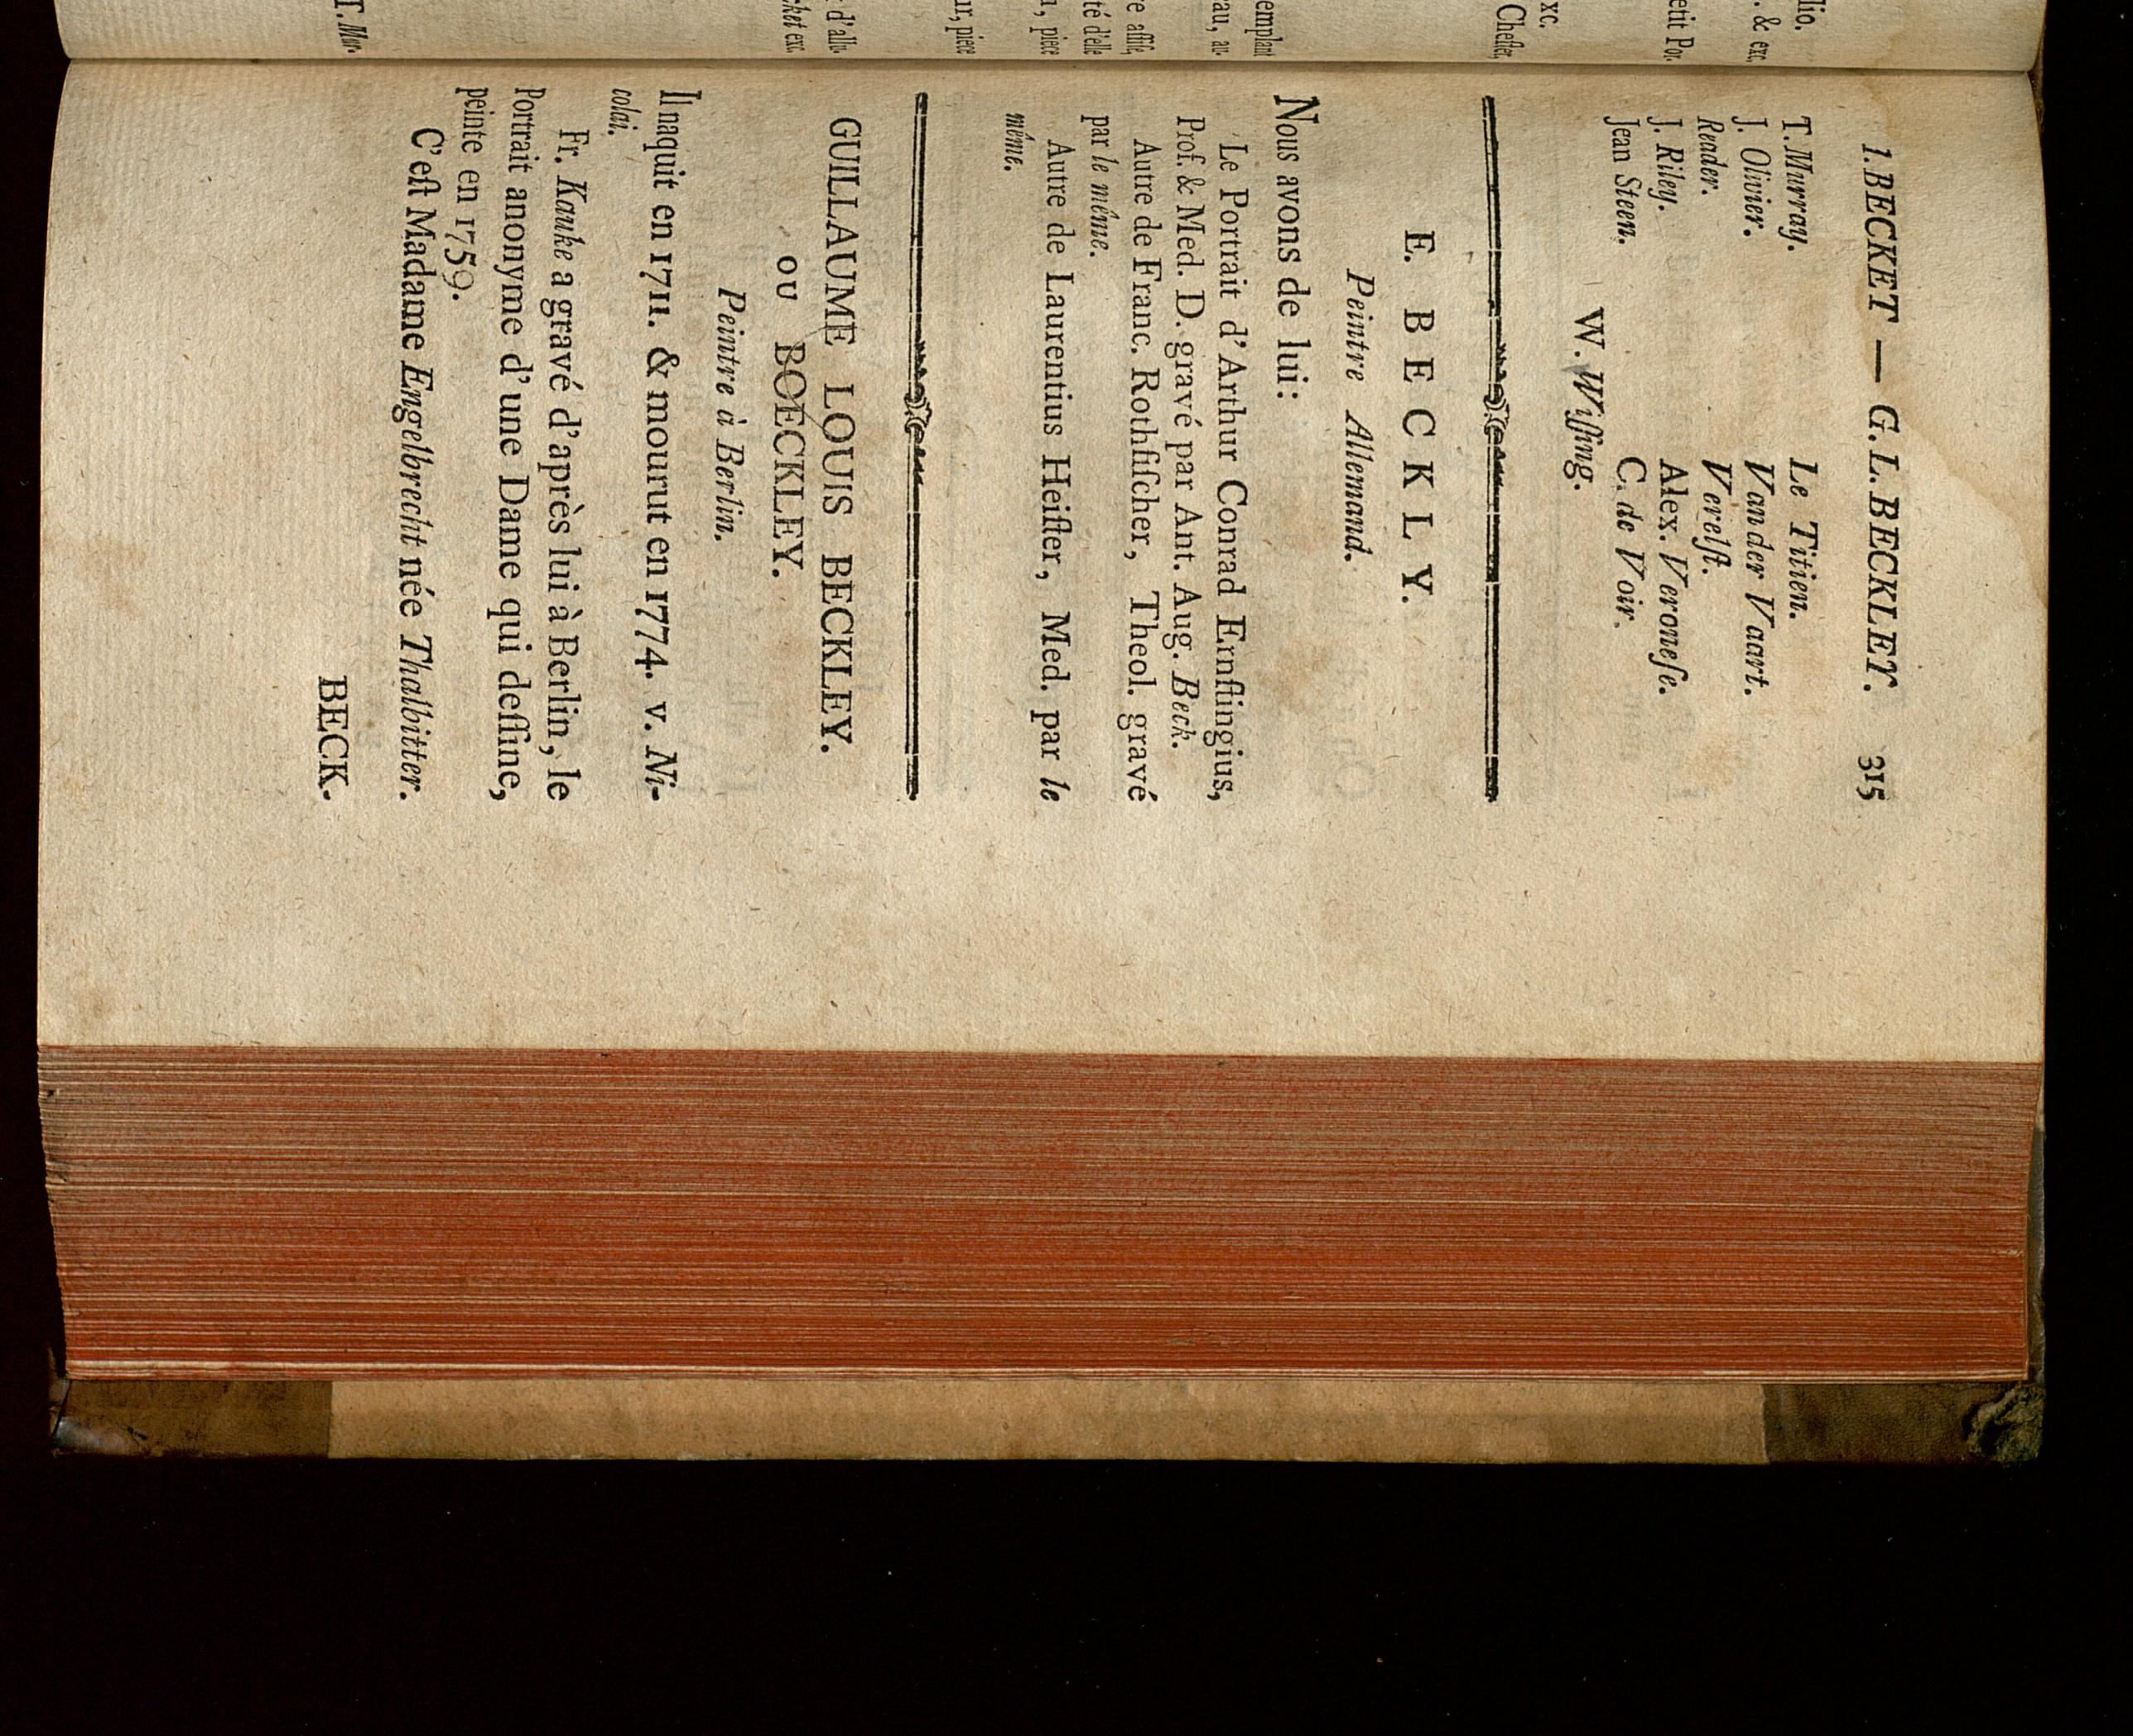 I. BECKET — G. L. BECKLEY. 315
T. Murray. Le Titien.
J. Olivier. Van der Vaart.
Reader. Verelſt.
J. Riley. Alex. Veroneſe.
Jean Steen. C. de Voir.
W. Wiſſing.
E. BECKLY.
Peintre Allemand.
Nous avons de lui:
Le Portrait d'Arthur Conrad Ernſtingius,
Prof. & Med. D. gravé par Ant. Aug. Beck.
Autre de Franc. Rothfiſcher, Theol. gravé
par le même.
Autre de Laurentius Heiſter, Med. par le
même.
GUILLAUME LOUIS BECKLEY.
OU BOECKLEY.
Peintre à Berlin.
Il naquit en 1711. & mourut en 1774. v. Ni-
colai.
Fr. Kauke a gravé d'après lui à Berlin, le
Portrait anonyme d'une Dame qui deſſine,
peinte en 1759.
C'eſt Madame Engelbrecht née Thalbitter.
BECK.
lio.
. & exc.
etit Por-
xc.
Cheſter,
emplant
au, au-
re aſſiſe,
té d'elle
, piece
ur, piece
d'allu-
ket exc.
T. Mur-